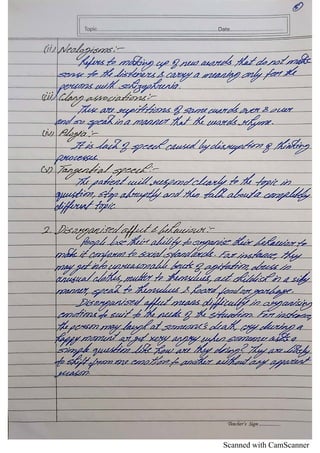 Topic
Date
(ii) Neologisms:-
Refers to making up of new words that do not make
sense to the listeners & carry a meaning only for the
persons with schizophrenia.
(iii) Clang associations:-
They are repititions of same words over & over
and or speak in a manner that the words rhyme.
(iv) Alogia:-
It is lack of speech caused by disruption of thinking
process.
(v) Tangential speech:-
The patient will respond clearly to the topic in
question, stop abruptly and then talk about a completely
different topic.
2. Disorganised affect & behaviour:-
People lose their ability to organize their behavior to
make it conform to social standards. For instance, they
may get into unreasonable bouts of agitation, dress in
unusual clothes, mutter to themselves, act childish or in a silly
manner, speak to themselves & hoard food or garbage.
Disorganised affect means difficulty in organising
emotions to suit to the needs of the situation. For instance,
the person may laugh at someone's death, cry during a
happy moment or get very angry when someone asks a
simple question like how are they doing? They are likely
to shift from one emotion to another without any apparent
reason.
Teacher's Sign
Scanned with CamScanner